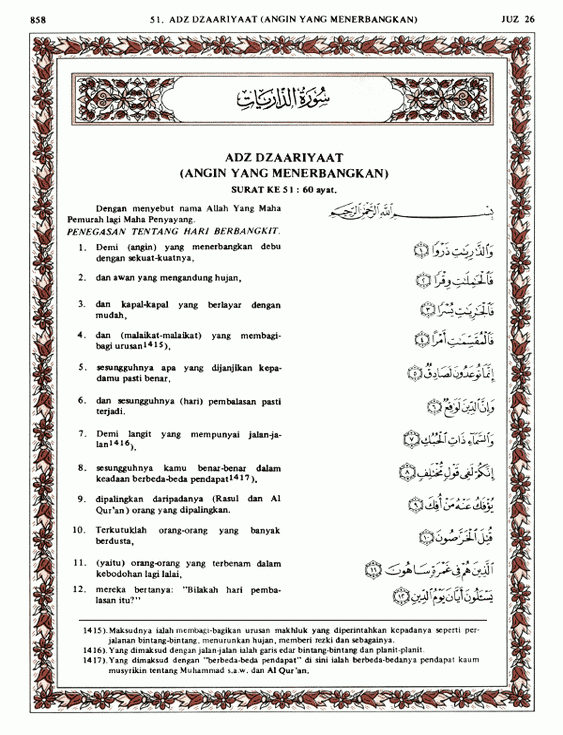 858
51. ADZ DZAARIYAAT (ANGIN YANG MENERBANGKAN)
JUZ 26
سُورَةُ الذَّارِيَات
ADZ DZAARIYAAT
(ANGIN YANG MENERBANGKAN)
SURAT KE 51 : 60 ayat.
Dengan menyebut nama Allah Yang Maha
Pemurah lagi Maha Penyayang.
بِسْمِ اللَّهِ الرَّحْمَٰنِ الرَّحِيمِ
PENEGASAN TENTANG HARI BERBANGKIT.
1. Demi (angin) yang menerbangkan debu
dengan sekuat-kuatnya,
وَالذَّارِيَاتِ ذَرْوًا ﴿١﴾
2. dan awan yang mengandung hujan,
فَالْحَامِلَاتِ وِقْرًا ﴿٢﴾
3. dan kapal-kapal yang berlayar dengan
mudah,
فَالْجَارِيَاتِ يُسْرًا ﴿٣﴾
4. dan (malaikat-malaikat) yang membagi-
bagi urusan1415),
فَالْمُقَسِّمَاتِ أَمْرًا ﴿٤﴾
5. sesungguhnya apa yang dijanjikan kepa-
damu pasti benar,
إِنَّمَا تُوعَدُونَ لَصَادِقٌ ﴿٥﴾
6. dan sesungguhnya (hari) pembalasan pasti
terjadi.
وَإِنَّ الدِّينَ لَوَاقِعٌ ﴿٦﴾
7. Demi langit yang mempunyai jalan-ja-
lan1416),
وَالسَّمَاءِ ذَاتِ الْحُبُكِ ﴿٧﴾
8. sesungguhnya kamu benar-benar dalam
keadaan berbeda-beda pendapat1417),
إِنَّكُمْ لَفِي قَوْلٍ مُخْتَلِفٍ ﴿٨﴾
9. dipalingkan daripadanya (Rasul dan Al
Qur'an) orang yang dipalingkan.
يُؤْفَكُ عَنْهُ مَنْ أُفِكَ ﴿٩﴾
10. Terkutuklah orang-orang yang banyak
berdusta,
قُتِلَ الْخَرَّاصُونَ ﴿١٠﴾
11. (yaitu) orang-orang yang terbenam dalam
kebodohan lagi lalai,
الَّذِينَ هُمْ فِي غَمْرَةٍ سَاهُونَ ﴿١١﴾
12. mereka bertanya: "Bilakah hari pemba-
lasan itu?"
يَسْأَلُونَ أَيَّانَ يَوْمُ الدِّينِ ﴿١٢﴾
1415). Maksudnya ialah membagi-bagikan urusan makhluk yang diperintahkan kepadanya seperti per-
jalanan bintang-bintang, menurunkan hujan, memberi rezki dan sebagainya.
1416). Yang dimaksud dengan jalan-jalan ialah garis edar bintang-bintang dan planit-planit.
1417). Yang dimaksud dengan "berbeda-beda pendapat" di sini ialah berbeda-bedanya pendapat kaum
musyrikin tentang Muhammad s.a.w. dan Al Qur'an.